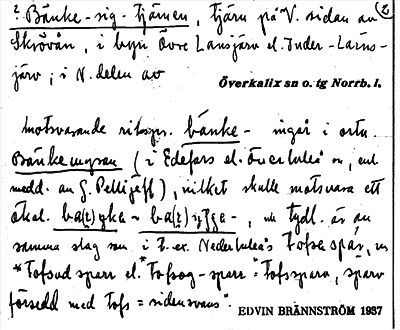 2. Bänke-sig-tjärnen, tjärn på V. sidan av (2)
Skrövån, i byn Övre Lansjärv el. Inder-Lans-
järv; i N. delen av
Överkalix sn o. tg Norrb. l.
motsvarande riksspr. bänke- ingår i ortn.
Bänkemyran (i Edefors el. Överluleå sn, enl
medd. av G. Pellijeff), vilket skulle motsvara ett
dial. ba(:)ŋke ~, tydl. är av
samma slag som i t.ex. Nederluleås Tofsaspär, en
*Tofsad sparr el. *Tofsog-sparr "Tofssparv, sparv
försedd med tofs = sidensvans".
EDVIN BRÄNNSTRÖM 1937